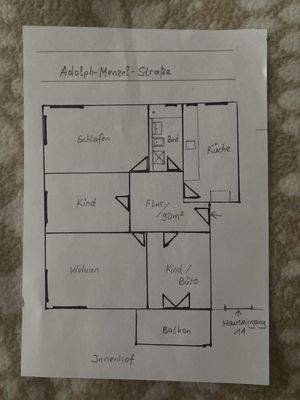 Adolph-Menzel-Straße
Schlafen
Bad
Küche
Kind
Flur
90m²
Wohnen
Kind/
Büro
Balkon
Hauseingang
11
Innenhof